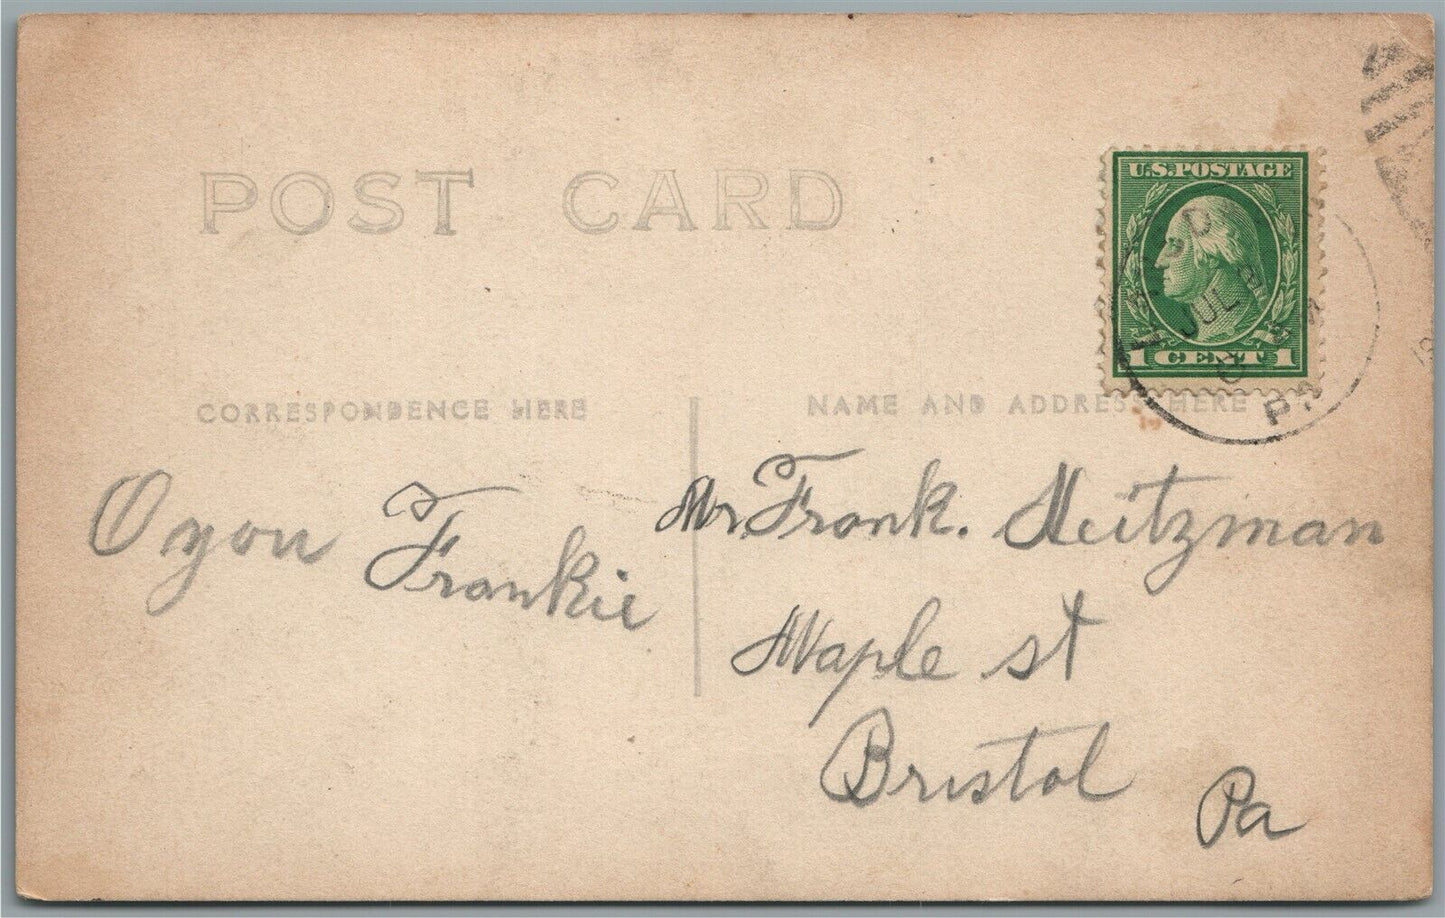 POST CARD
U.S. POSTAGE
1 CENT 1
JUL
PA
CORRESPONDENCE HERE
NAME AND ADDRESS HERE
O you Frankie
Mr. Frank. Heitzman
Maple st
Bristol
Pa